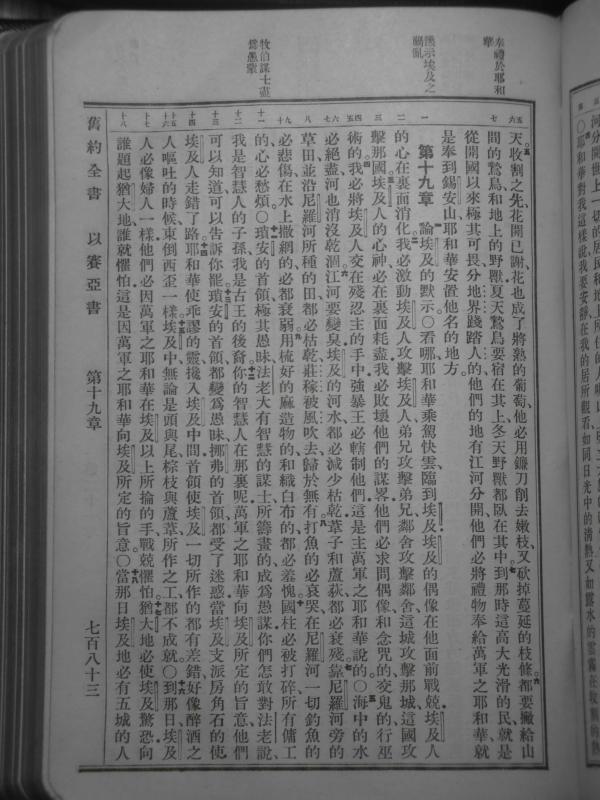 奉禮於耶和華
應示埃及之禍亂
牧伯謀士盡爲愚蒙
五 六 七 一 二 三 四 五 六 七 八 九 十 十一 十二 十三 十四 十五 十六 十七 十八
天收割之先花開已謝花也成了將熟的葡萄他必用鐮刀削去嫩枝又砍掉蔓延的枝條都要撇給山
間的鷙鳥和地上的野獸夏天鷙鳥要宿在其上冬天野獸都臥在其中到那時這高大光滑的民就是
從開國以來極其可畏分地界踐踏人的他們的地有江河分開他們必將禮物奉給萬軍之耶和華就
是奉到錫安山耶和華安置他名的地方
第十九章 論埃及的默示○看哪耶和華乘駕快雲臨到埃及埃及的偶像在他面前戰兢埃及人
的心在裏面消化我必激動埃及人攻擊埃及人弟兄攻擊弟兄鄰舍攻擊鄰舍這城攻擊那城這國攻
擊那國埃及人的心神必在裏面耗盡我必敗壞他們的謀畧他們必求問偶像和念咒的交鬼的行巫
術的我必將埃及人交在殘忍主的手中強暴王必轄制他們這是主萬軍之耶和華說的○海中的水
必絕盡河也消沒乾涸江河要變臭埃及的河水都必減少枯乾葦子和蘆荻都必衰殘靠尼羅河旁的
草田並沿尼羅河所種的田都必枯乾莊稼被風吹去歸於無有打魚的必哀哭在尼羅河一切釣魚的
必悲傷在水上撒網的必都衰弱用梳好的麻造物的和織白布的都必羞愧國柱必被打碎所有傭工
的心必愁煩○瑣安的首領極其愚昧法老大有智慧的謀士所籌畫的成爲愚謀你們怎敢對法老說
我是智慧人的子孫我是古王的後裔你的智慧人在那裏呢萬軍之耶和華向埃及所定的旨意他們
可以知道可以告訴你罷瑣安的首領都變爲愚昧挪弗的首領都受了迷惑當埃及支派房角石的使
埃及人走錯了路耶和華使乖謬的靈攙入埃及中間首領使埃及一切所作的都有差錯好像醉酒之
人嘔吐的時候東倒西歪一樣埃及中無論是頭與尾棕枝與蘆葦所作之工都不成就○到那日埃及
人必像婦人一樣他們必因萬軍之耶和華在埃及以上所掄的手戰兢懼怕猶大地必使埃及驚恐向
誰題起猶大地誰就懼怕這是因萬軍之耶和華向埃及所定的旨意○當那日埃及地必有五城的人
舊約全書 以賽亞書 第十九章 七百八十三